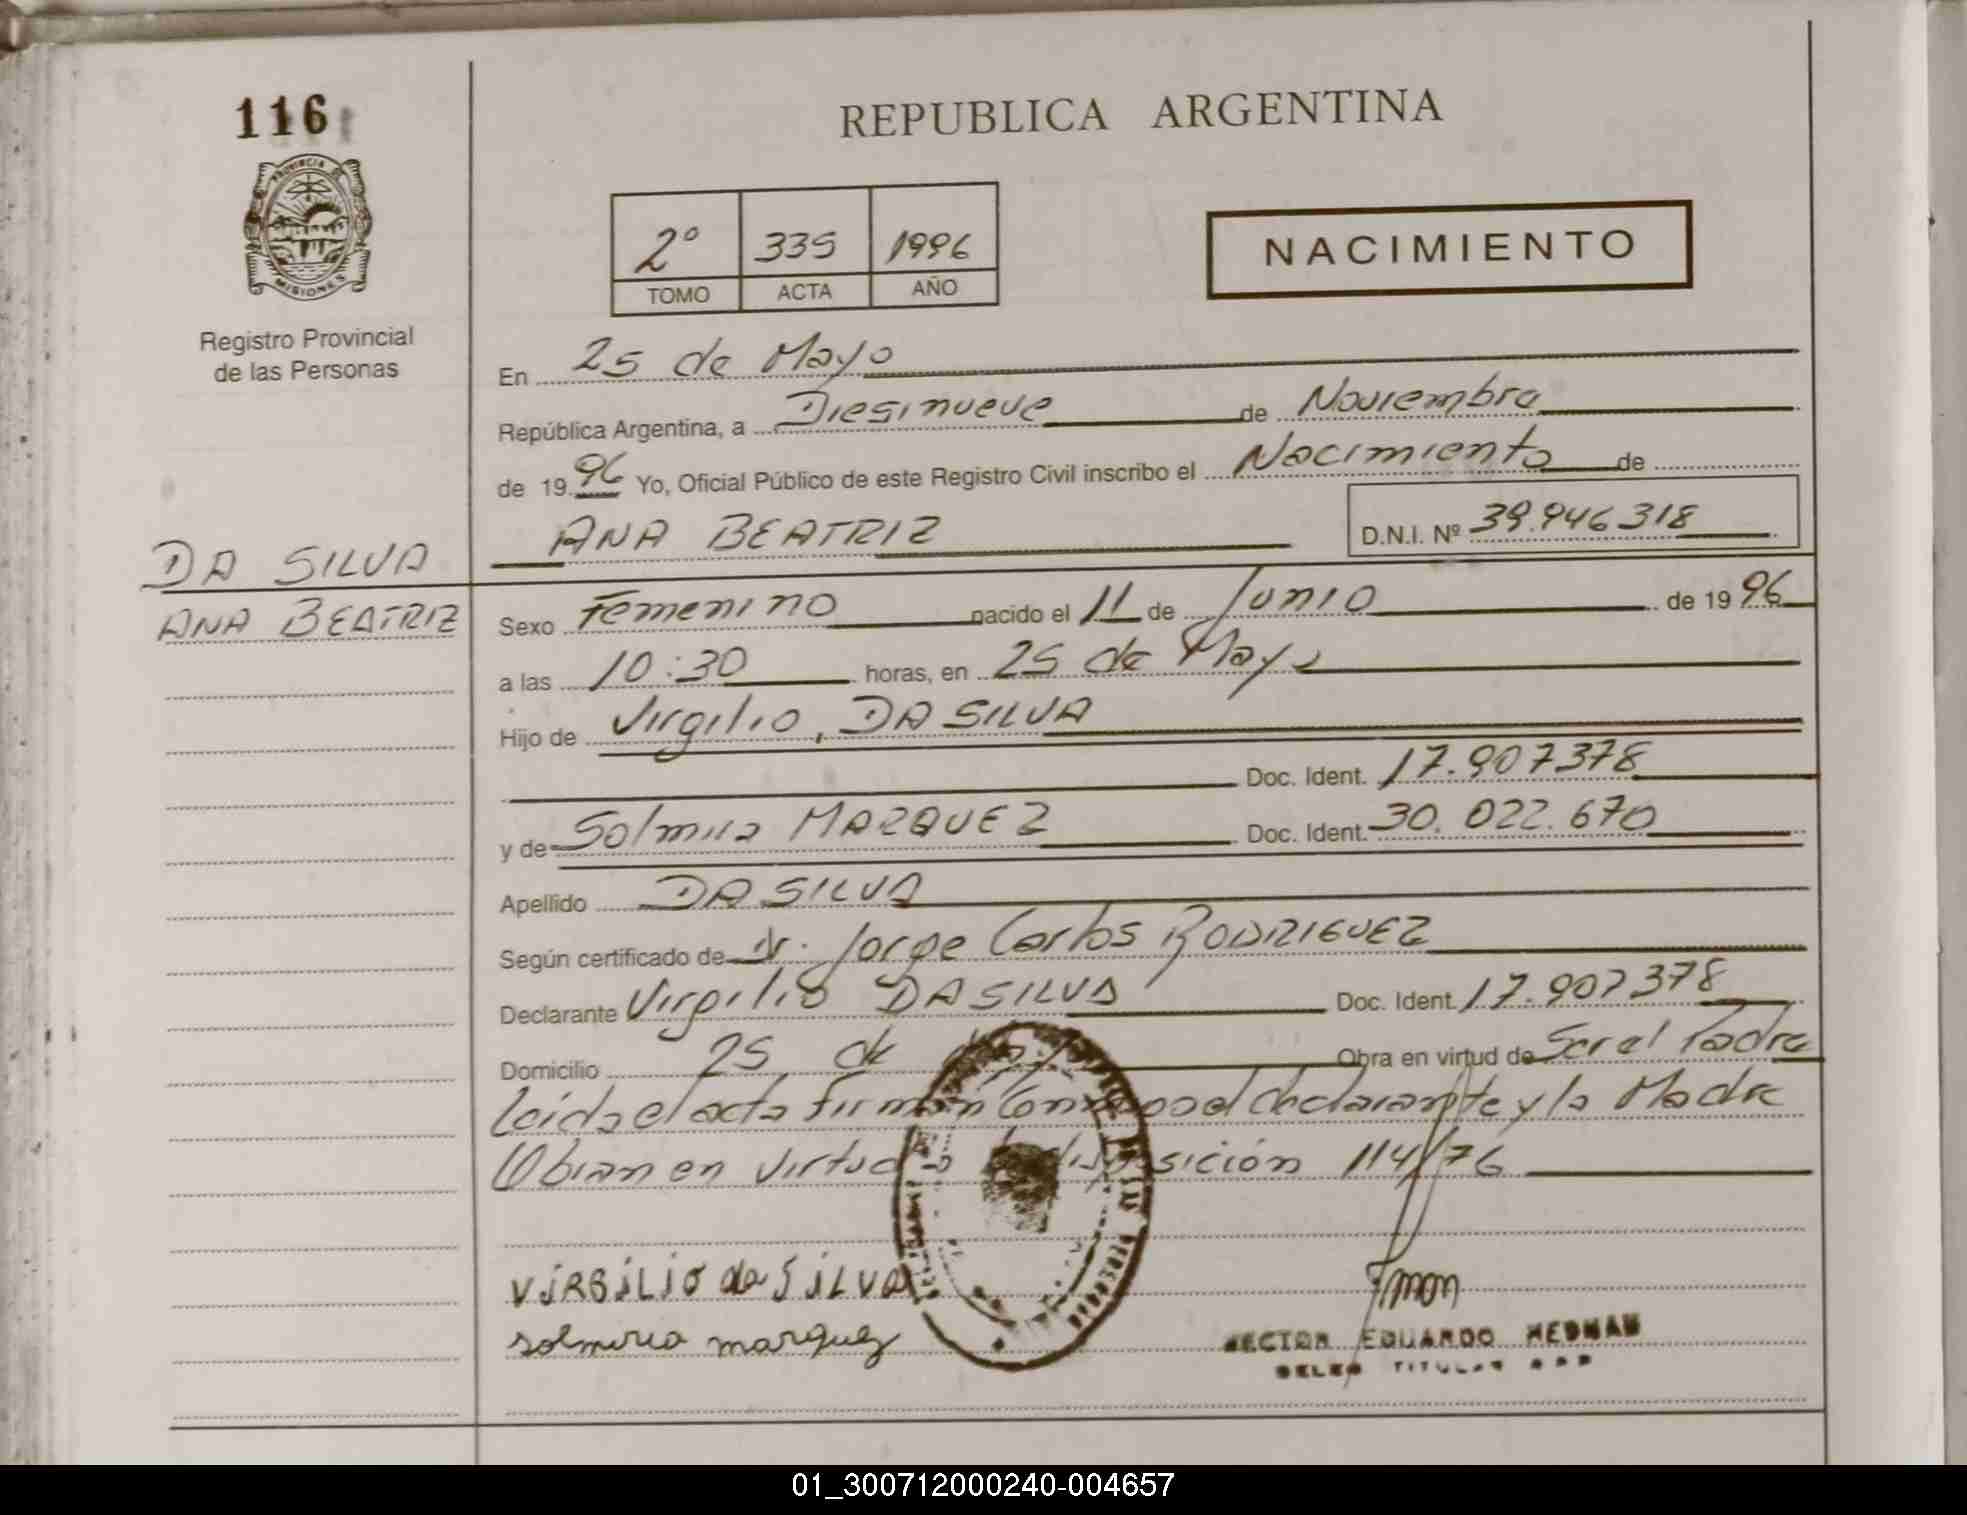 116
REPUBLICA ARGENTINA
PROVINCIA DE
MISIONES
Registro Provincial
de las Personas
2º 335 1996
TOMO ACTA AÑO
NACIMIENTO
En 25 de Mayo
República Argentina, a Diesinueve de Noviembre
de 1996 Yo, Oficial Público de este Registro Civil inscribo el Nacimiento de
ANA BEATRIZ D.N.I. Nº 39.946318
DA SILVA
ANA BEATRIZ
Sexo Femenino nacido el 11 de Junio de 1996
a las 10:30 horas, en 25 de Mayo
Hijo de Virgilio, DA SILVA
Doc. Ident. 17.907378
y de Solmira MARQUEZ Doc. Ident. 30.022.670
Apellido DA SILVA
Según certificado de Dr. Jorge Carlos RODRIGUEZ
Declarante Virgilio DA SILVA Doc. Ident. 17.907378
Domicilio 25 de Obra en virtud de Ser el Padre
Leida el acta firman Conmigo el declarante y la Madre
Obran en virtud disposición 114/76
ViRGiLiO da SiLVA
solmira marquez
HECTOR EDUARDO
TITULAR
01_300712000240-004657